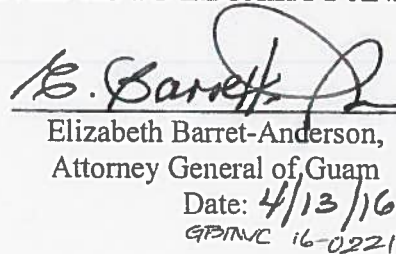 E. Barrett
Elizabeth Barret-Anderson,
Attorney General of Guam
Date: 4/13/16
16-0221